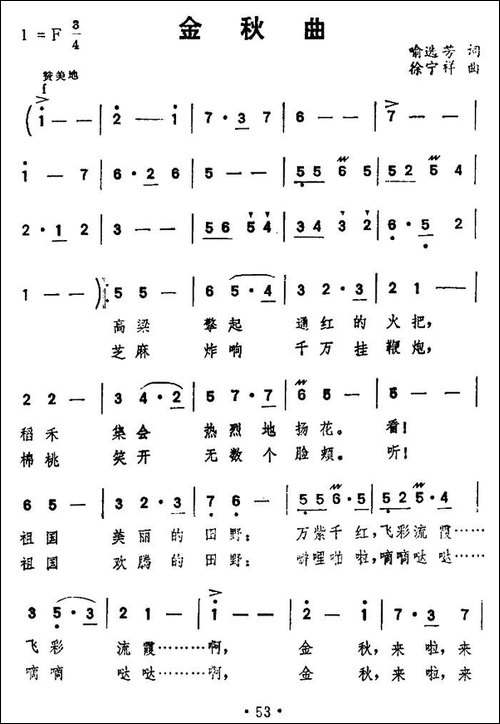 金秋曲
1=F 3/4
喻选芳 词
徐宁祥 曲
赞美地
f
( 1 — — | 2 — 1 | 7 · 3 7 | 6 — — | 7 — — |
1 — 7 | 6 · 2 6 | 5 — — | 5 5 6 5 | 5 2 5 4 |
2 · 1 2 | 3 — — | 5 6 5 4 | 3 4 3 2 | 6 · 5 2 |
1 — — ) : 5 5 — | 6 5 · 4 | 3 2 · 3 | 2 1 — |
高梁 擎起 通红的火把，
芝麻 炸响 千万挂鞭炮，
2 2 — | 3 4 · 2 | 5 7 · 7 | 6 5 — | 5 — — |
稻禾 集会 热烈地扬花。 看！
棉桃 笑开 无数个脸颊。 听！
6 5 — | 3 2 · 3 | 7 6 — | 5 5 6 · 5 | 5 2 5 · 4 |
祖国 美丽的田野： 万紫千红，飞彩流霞……
祖国 欢腾的田野： 噼哩啪啦，嘀嘀哒哒……
3 5 · 3 | 2 1 — | 1 — — | 2 — 1 | 7 · 3 7 |
飞彩 流霞………啊， 金 秋，来啦，来
嘀嘀 哒哒………啊， 金 秋，来啦，来
· 53 ·